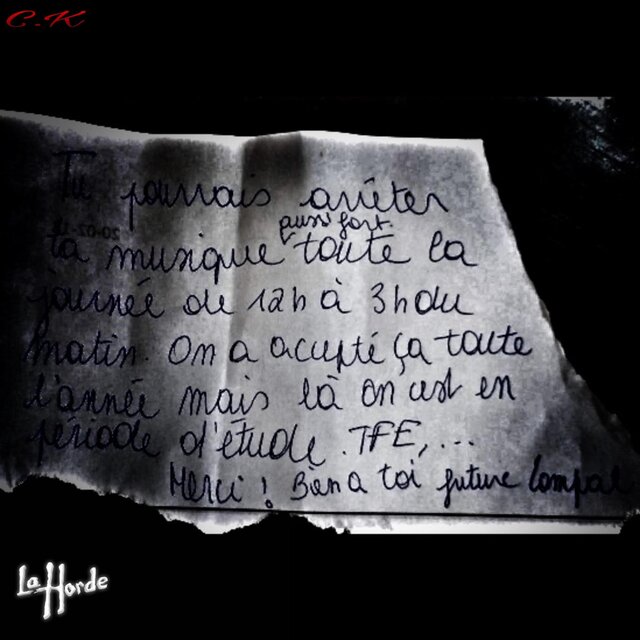 C.K
Tu pourrais arrêter
pusi fort
ta musique toute la
journée de 12h à 3h du
matin. On a accepté ça toute
l'année mais là on est en
période d'étude. TFE,...
Merci ! Bien a toi future
La Horde